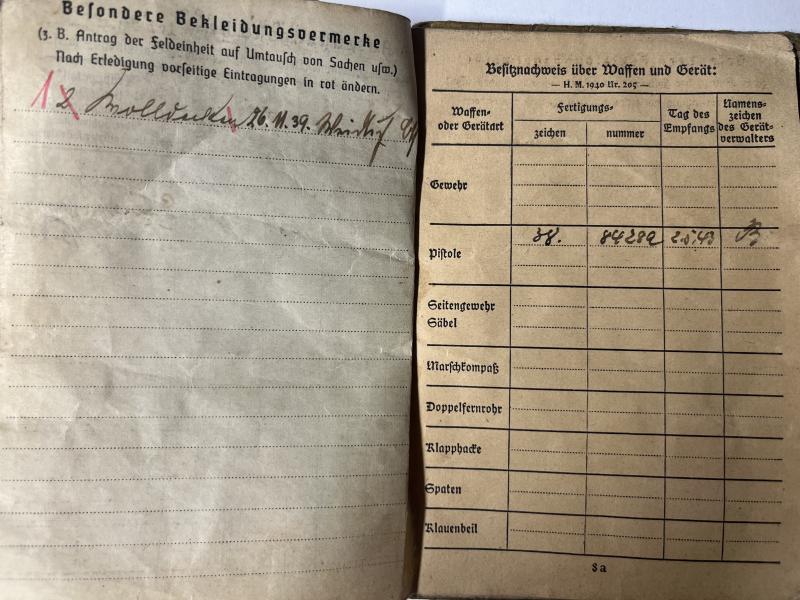 Besondere Bekleidungsvermerke
(z. B. Antrag der Feldeinheit auf Umtausch von Sachen usw.)
Nach Erledigung vorseitige Eintragungen in rot ändern.
1 2 Wolldecken 26.11.39.
Besitznachweis über Waffen und Gerät:
— H. M. 1940 Nr. 205 —
Waffen- oder Gerätart
Fertigungs-
zeichen
nummer
Tag des Empfangs
Namens- zeichen des Gerät- verwalters
Gewehr
Pistole 38. 8428a 2.5.43 B
Seitengewehr
Säbel
Marschkompaß
Doppelfernrohr
Klapphacke
Spaten
Klauenbeil
8a